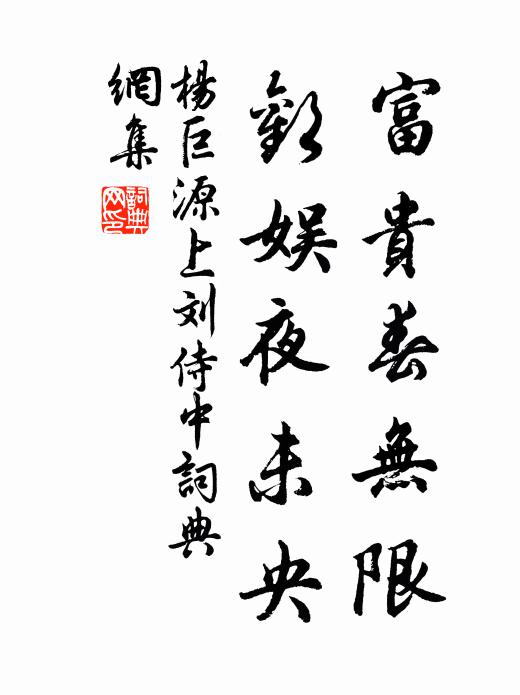 富貴春無限
歡娱夜未央
楊巨源上刘侍中詞典
網集
詞典網印